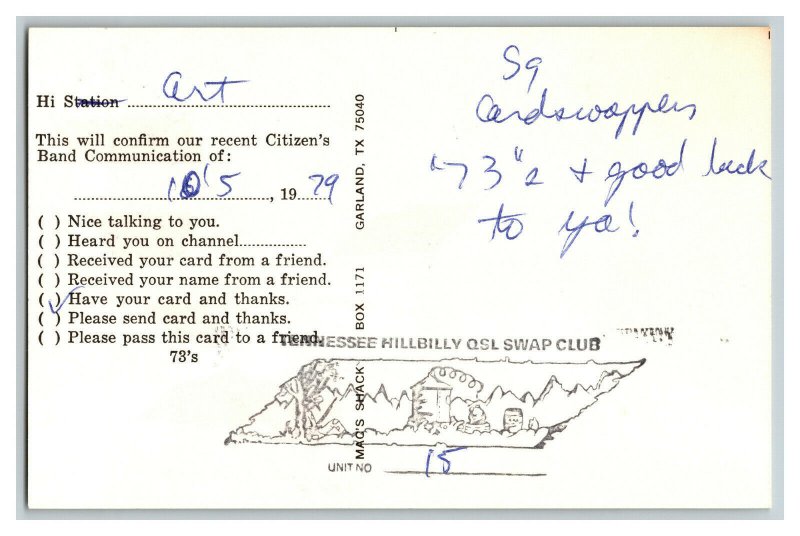 Hi Station Art
This will confirm our recent Citizen's
Band Communication of:
10' 5, 19 79
( ) Nice talking to you.
( ) Heard you on channel
( ) Received your card from a friend.
( ) Received your name from a friend.
( ) Have your card and thanks.
( ) Please send card and thanks.
( ) Please pass this card to a friend.
73's
MAC'S SHACK BOX 1171 GARLAND, TX 75040
Cardswappers
"73"s + good luck
to ya!
TENNESSEE HILLBILLY QSL SWAP CLUB
UNIT NO 15